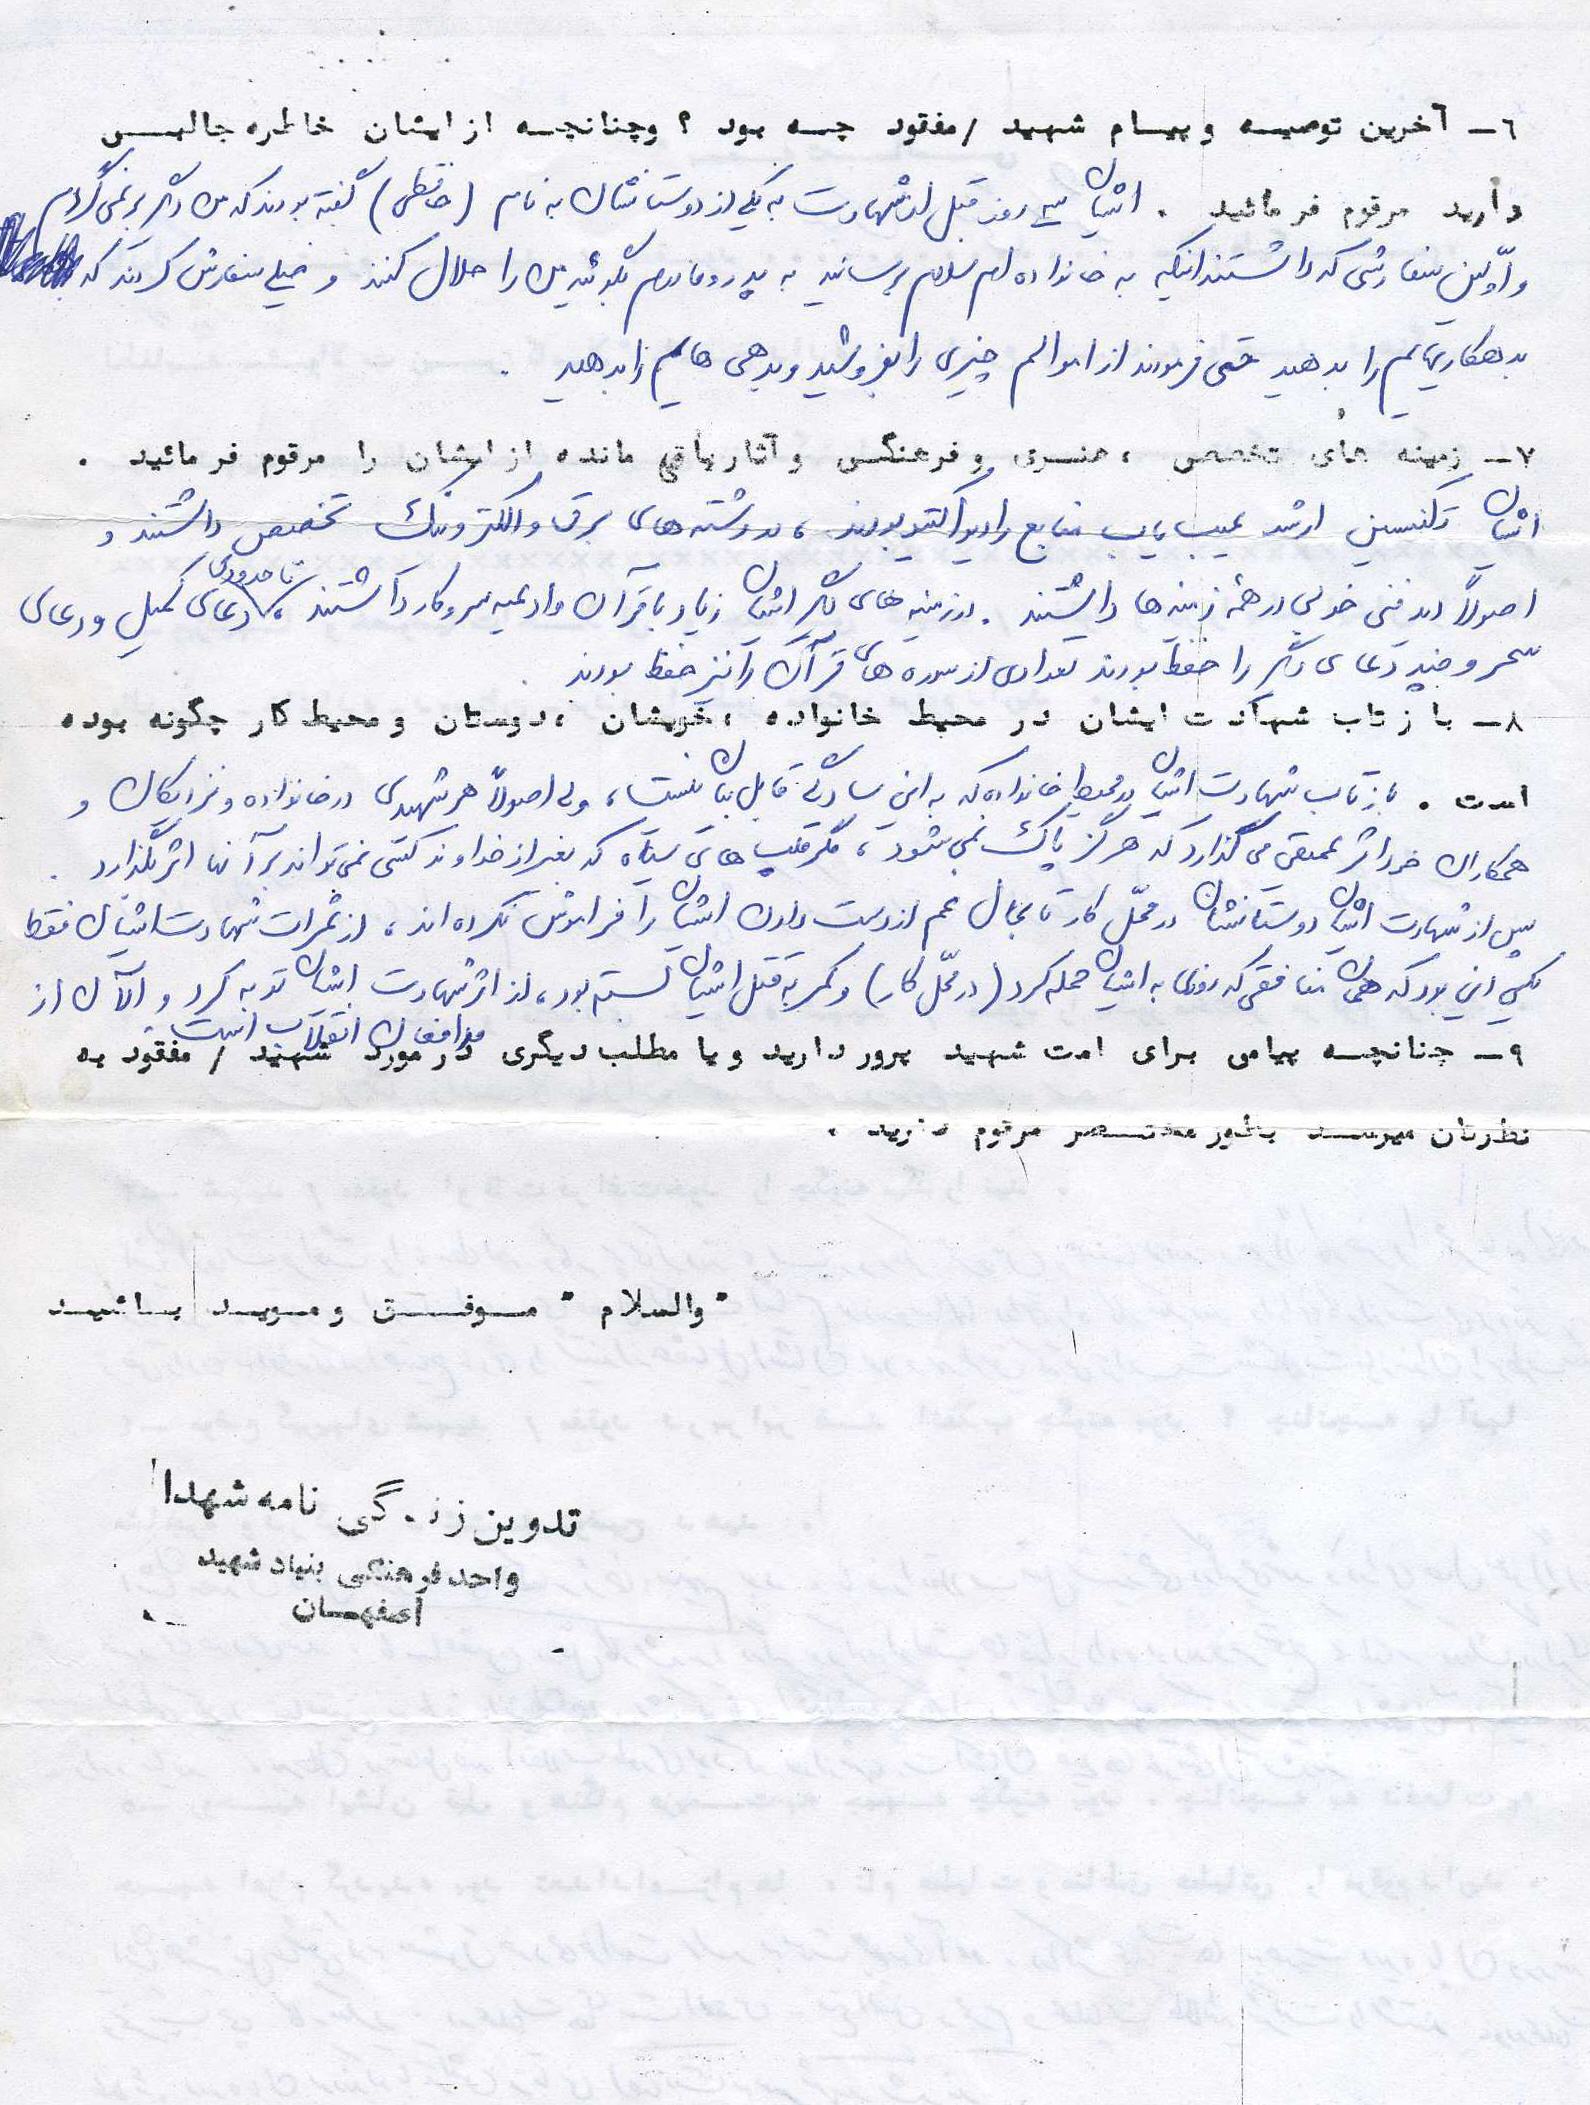 ۶ـ آخرین توصیـه و پیـام شهید /مفقود چـه بود ؟ وچنانچـه از ایشان خاطره جالبـی
دارید مرقوم فرمائید . ایشان سه روز قبل از شهادت به یکی از دوستانشان به نام (حافظی) گفته بودند که من دیگر بر نمی گردم
و اولین سفارشی که داشتند اینکه به خانواده ام سلام برسانید به پدر و مادرم بگوئید من را حلال کنند و خیلی سفارش کردند که
بدهکاریهایم را بدهید حتی فرمودند از اموالم چیزی را بفروشید و بدهی هایم را بدهید .
۷ـ زمینه های تخصصی ، هنـری و فرهنگـی و آثار باقی مانده از ایشان را مرقوم فرمائید .
ایشان تکنسین ارشد عیب یاب منابع رادیواکتیو بودند ، در رشته های برق و الکترونیک تخصص داشتند و
اصولاً دید فنی خوبی در همه زمینه ها داشتند . در زمینه های دیگر ایشان زیاد با قرآن و ادعیه سر و کار داشتند ، تا حدودی دعای کمیل و دعای
سحر و چند دعای دیگر را حفظ بودند تعدادی از سوره های قرآن را نیز حفظ بودند .
۸ـ بازتاب شهادت ایشان در محیط خانواده ، خویشان ، دوستان و محیط کار چگونه بوده
است . بازتاب شهادت ایشان در محیط خانواده که به این سادگی قابل بیان نیست ، ولی اصولاً هر شهیدی در خانواده و نزدیکان و
همکاران خود اثر عمیقی می گذارد که هرگز پاک نمی شود ، مگر قلب های سیاه که بغیر از خداوند کسی نمی تواند بر آنها اثر بگذارد .
پس از شهادت ایشان دوستانشان در محل کار تا بحال غم از دست دادن ایشان را فراموش نکرده اند ، از ثمرات شهادت ایشان فقط
یکی این بود که همان منافقی که روزی به ایشان حمله کرد (در محل کار) و کمر به قتل ایشان بسته بود ، از اثر شهادت ایشان توبه کرد و الآن از
مدافعان انقلاب است
۹ـ چنانچـه پیامی برای امت شهید پرور دارید و یا مطلب دیگری در مورد شهید / مفقود به
نظرتان میرسـد بطور مختـصر مرقوم دارید .
" والسلام " مـوفـق و مـویـد بـاشیـد
تدوین زندگی نامه شهدا
واحد فرهنگی بنیاد شهید
اصفهـان